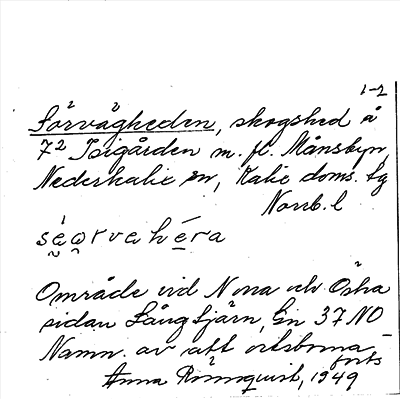 1-2
Sörvägheden, skogshed å
7² Tsigården m. fl. Månsbyn
Nederkalix sn, Kalix doms. lg
Norrb. l
séarvahéra
Område vid Norra och Östra
sidan Långtjärn, En 37 NO
Namn. av att ortsborna
forts
Anna Rönnquist, 1949